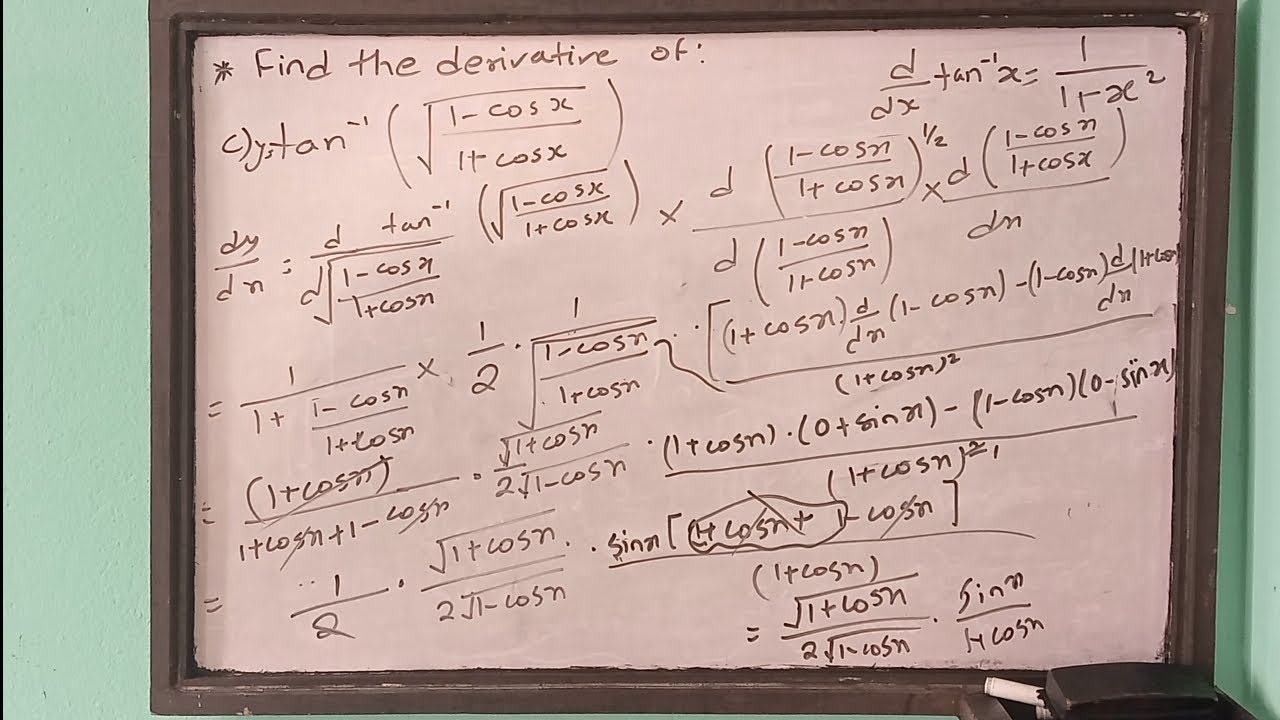 * Find the derivative of:
d/dx tan⁻¹x = 1/(1+x²)
c) y = tan⁻¹ (√((1-cosx)/(1+cosx)))
dy/dx = d tan⁻¹ (√((1-cosx)/(1+cosx))) / d√((1-cosx)/(1+cosx)) × d((1-cosx)/(1+cosx))^(1/2) / d((1-cosx)/(1+cosx)) × d((1-cosx)/(1+cosx)) / dx
= 1/(1 + (1-cosx)/(1+cosx)) × 1/2 · 1/√((1-cosx)/(1+cosx)) · [(1+cosx) d/dx (1-cosx) - (1-cosx) d/dx (1+cosx)] / (1+cosx)²
= (1+cosx)/(1+cosx+1-cosx) · √(1+cosx)/(2√(1-cosx)) · ((1+cosx)·(0+sinx) - (1-cosx)(0-sinx))/(1+cosx)²
= 1/2 · √(1+cosx)/(2√(1-cosx)) · sinx[1+cosx+1-cosx]/(1+cosx)
= √(1+cosx)/(2√(1-cosx)) · sinx/(1+cosx)